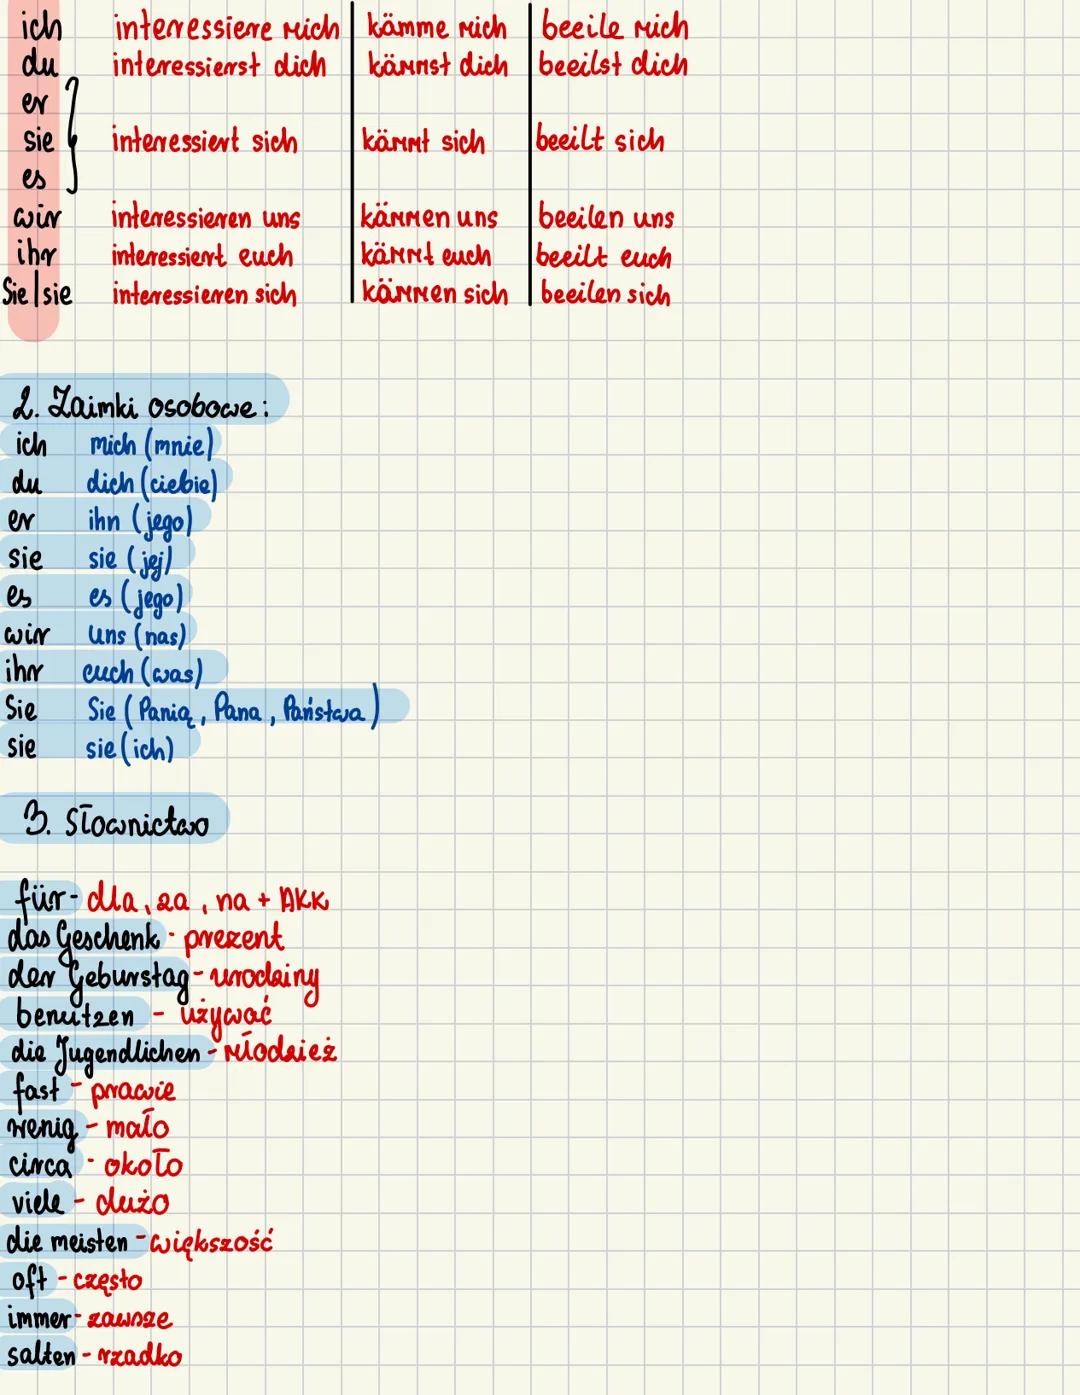 ich interessiere mich kämme mich beeile mich
du interessierst dich kämmst dich beeilst dich
er
sie interessiert sich kämmt sich beeilt sich
es
wir interessieren uns kämmen uns beeilen uns
ihr interessiert euch kämmt euch beeilt euch
Sie|sie interessieren sich kämmen sich beeilen sich
2. Zaimki osobowe:
ich mich (mnie)
du dich (ciebie)
er ihn (jego)
sie sie (jej)
es es (jego)
wir uns (nas)
ihr euch (was)
Sie Sie (Panią, Pana, Państwa)
sie sie (ich)
3. Słownictwo
für - dla, za, na + AKK
das Geschenk - prezent
der Geburstag - urodziny
benutzen - używać
die Jugendlichen - młodzież
fast - prawie
wenig - mało
circa - około
viele - dużo
die meisten - większość
oft - często
immer - zawsze
salten - rzadko